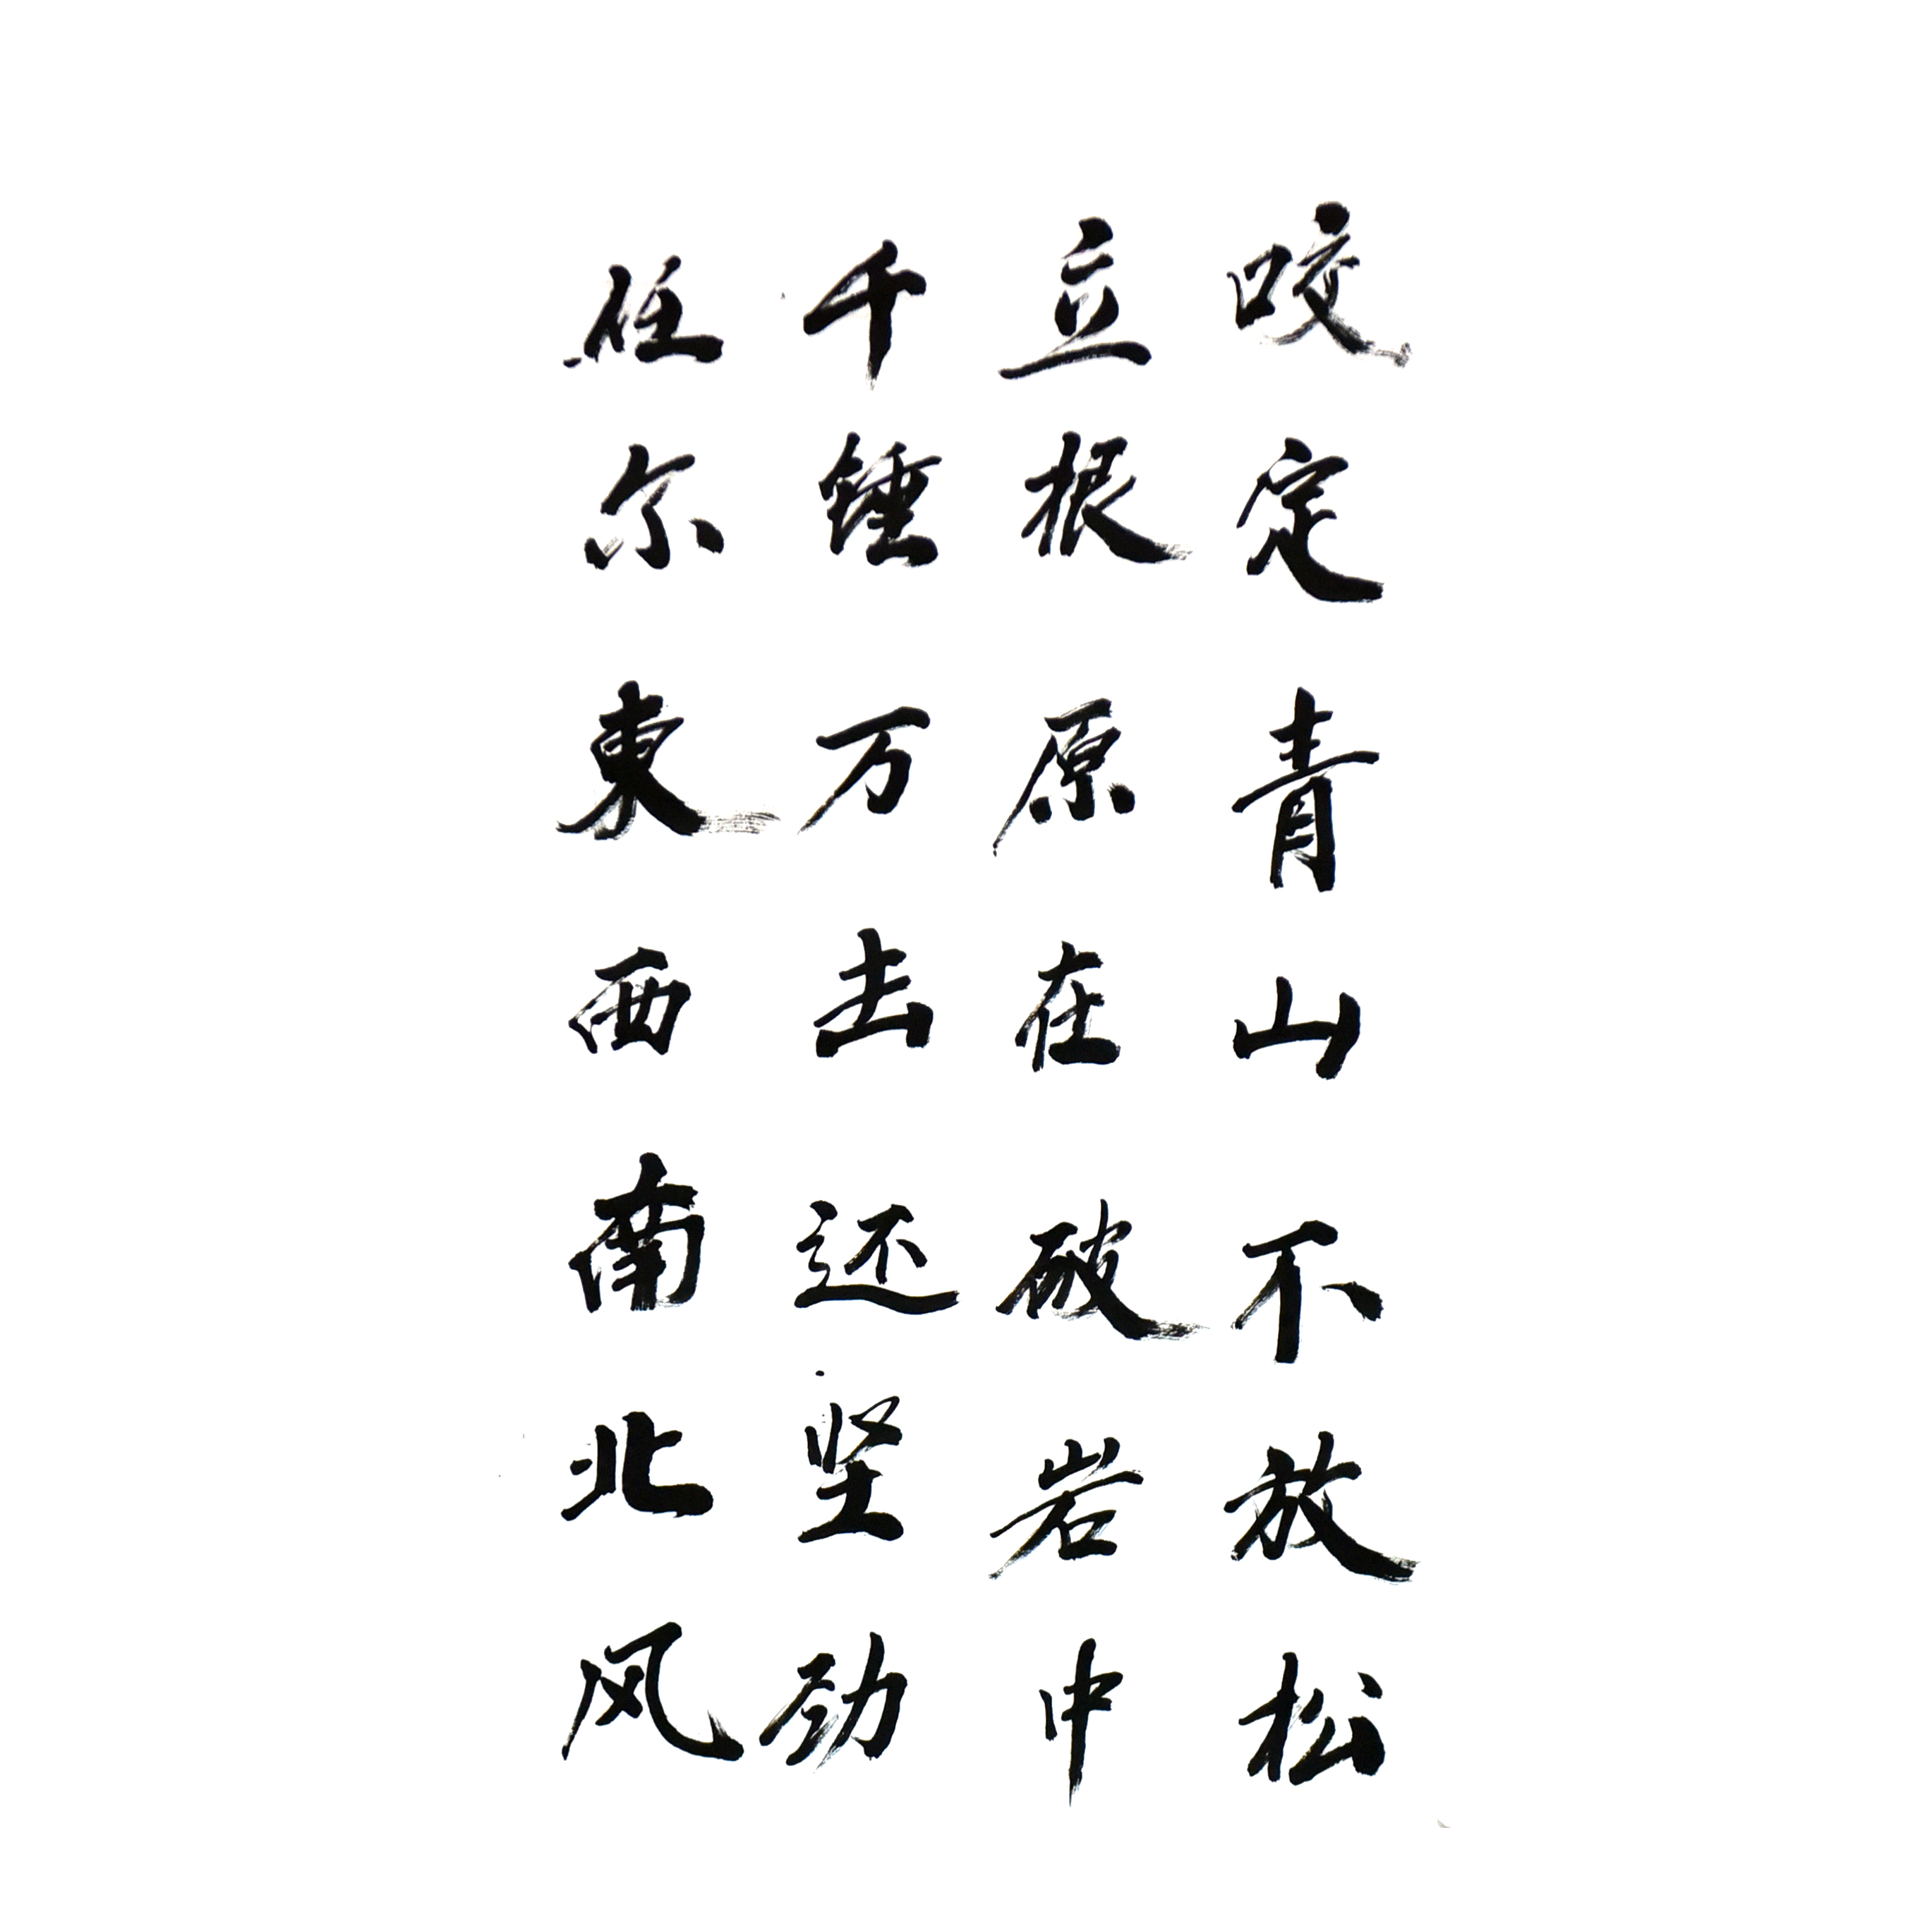 咬定青山不放松
立根原在破岩中
千锤万击还坚劲
任尔東西南北风